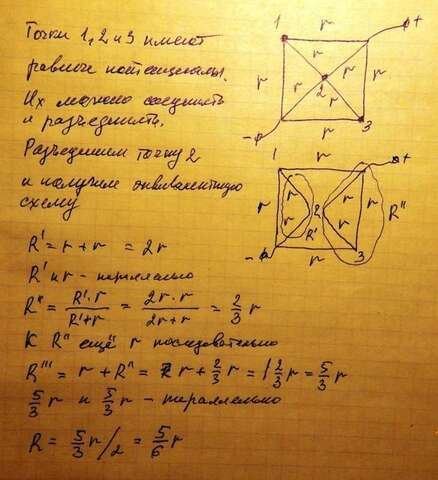 Точки 1, 2 и 3 имеют
равные потенциалы.
Их можно соединять
и разъединять.
Разъединим точку 2
и получим эквивалентную
схему
1 r +
r r r r
2
r r
- r 3
1 r +
r r r r R"
2
r R' r
- r 3
R' = r + r = 2r
R' и r - параллельно
R" = R'·r / R'+r = 2r·r / 2r+r = 2/3 r
К R" ещё r последовательно
R''' = r + R" = r + 2/3 r = 1 2/3 r = 5/3 r
5/3 r и 5/3 r - параллельно
R = 5/3 r / 2 = 5/6 r